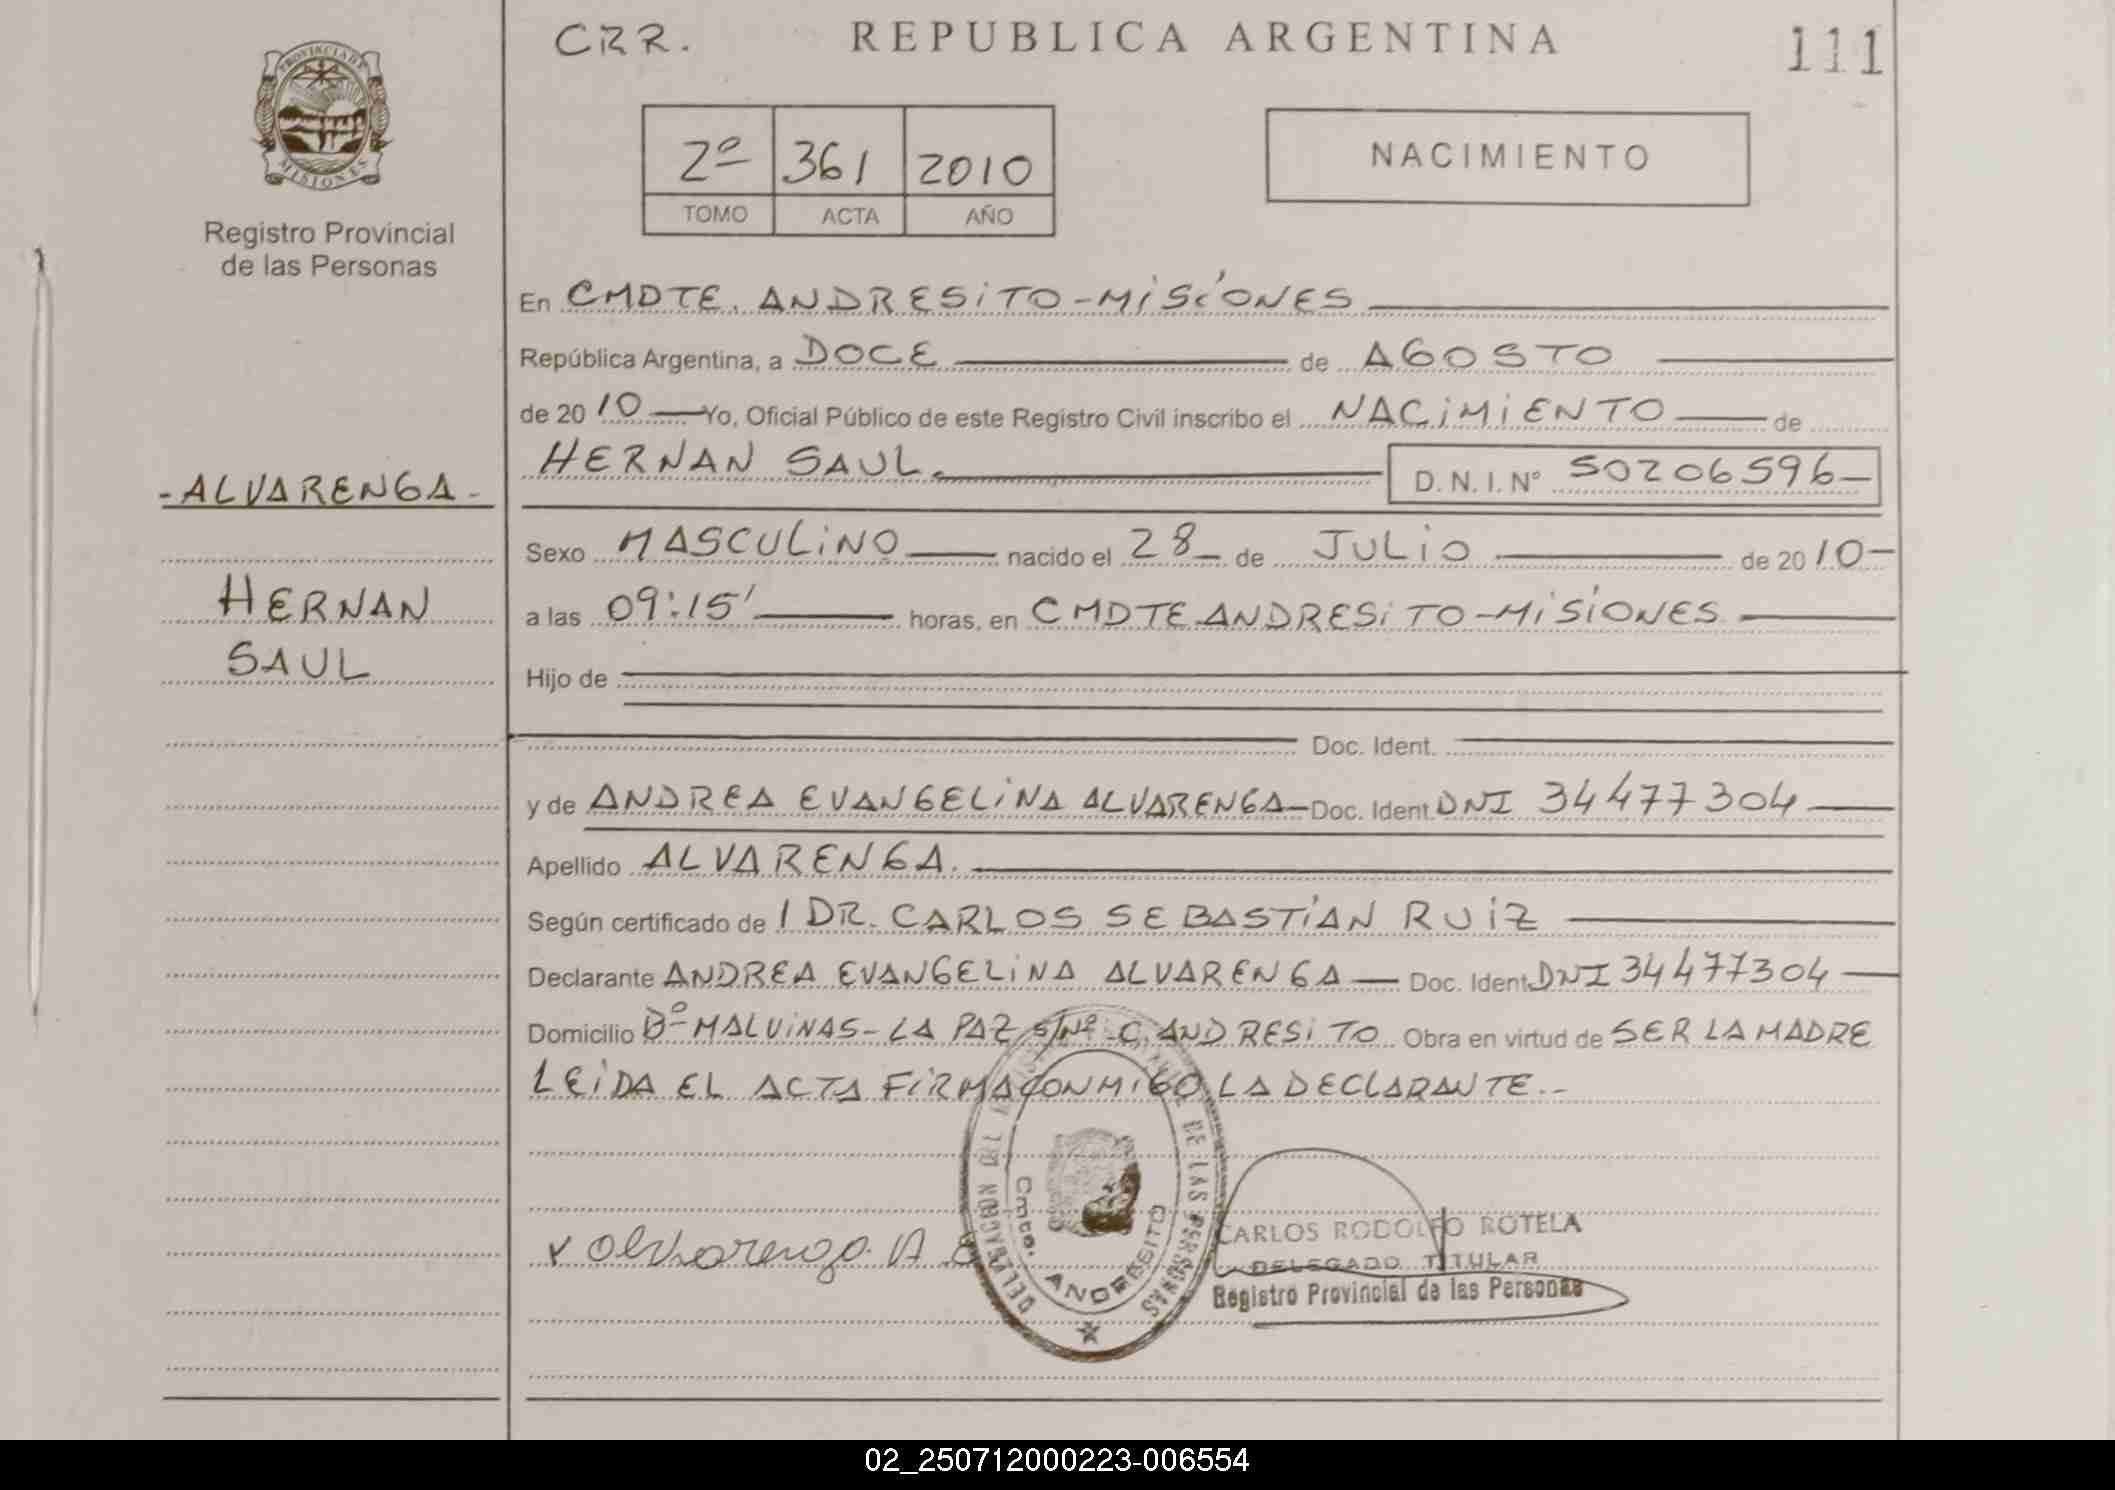 CRR.
REPUBLICA ARGENTINA
111
PROVINCIA DE
MISIONES
Registro Provincial
de las Personas
2º 361 2010
TOMO ACTA AÑO
NACIMIENTO
-ALVARENGA-
HERNAN
SAUL
En CMDTE. ANDRESITO-MISIONES
República Argentina, a DOCE de AGOSTO
de 2010 Yo, Oficial Público de este Registro Civil inscribo el NACIMIENTO de
HERNAN SAUL. D. N. I. Nº 50206596-
Sexo MASCULINO nacido el 28 de JULIO de 2010-
a las 09:15' horas, en CMDTE ANDRESITO-MISIONES
Hijo de
Doc. Ident.
y de ANDREA EVANGELINA ALVARENGA- Doc. Ident. DNI 34477304
Apellido ALVARENGA.
Según certificado de 1 DR. CARLOS SEBASTIAN RUIZ
Declarante ANDREA EVANGELINA ALVARENGA- Doc. Ident. DNI 34477304
Domicilio Bº MALVINAS-LA PAZ S/Nº-C. ANDRESITO Obra en virtud de SER LA MADRE
LEIDA EL ACTA FIRMA CONMIGO LA DECLARANTE.-
DE LAS PERSONAS
Cmte. ANDRESITO
CARLOS RODOLFO ROTELA
DELEGADO TITULAR
Registro Provincial de las Personas
02_250712000223-006554